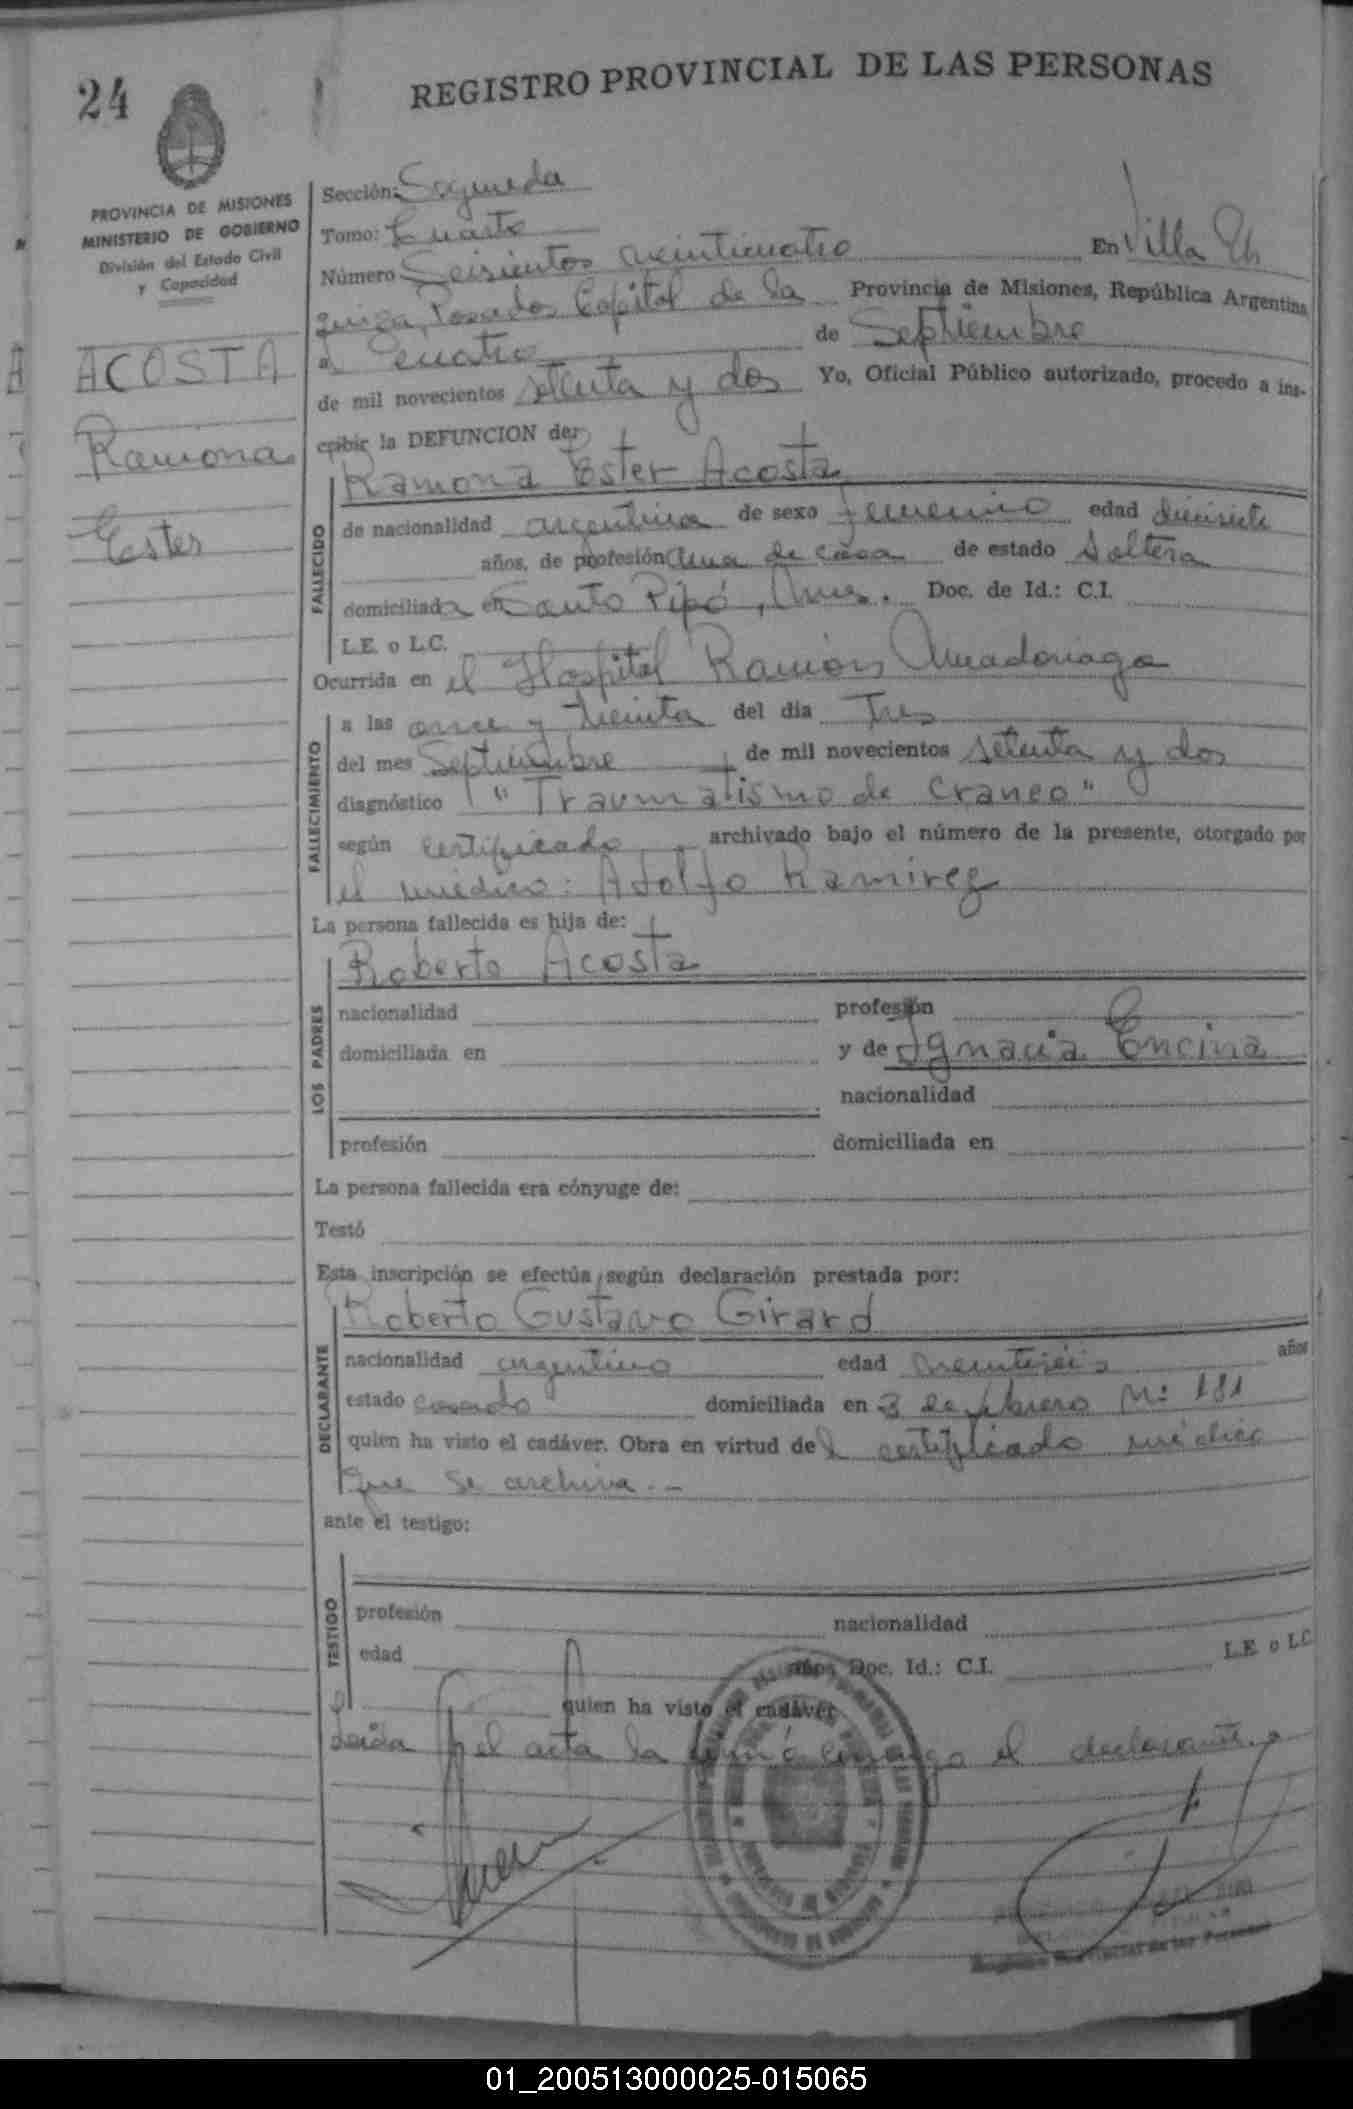 24
REGISTRO PROVINCIAL DE LAS PERSONAS
PROVINCIA DE MISIONES
MINISTERIO DE GOBIERNO
División del Estado Civil
y Capacidad
ACOSTA
Ramona
Ester
Sección: Segunda
Tomo: Cuarto
Número Seisientos veinticuatro En Villa Ur
quiza, Posadas Capital de la Provincia de Misiones, República Argentina
a Cuatro de Septiembre
de mil novecientos setenta y dos Yo, Oficial Público autorizado, procedo a ins-
cribir la DEFUNCION de:
Ramona Ester Acosta
FALLECIDO
de nacionalidad argentina de sexo femenino edad diecisiete
años, de profesión Ama de casa de estado Soltera
domiciliada en Santo Pipó, Mnes. Doc. de Id.: C.I.
L.E. o L.C.
Ocurrida en el Hospital Ramón Madariaga
FALLECIMIENTO
a las once y treinta del día Tres
del mes Septiembre de mil novecientos setenta y dos
diagnóstico "Traumatismo de Craneo"
según certificado archivado bajo el número de la presente, otorgado por
el médico: Adolfo Ramirez
La persona fallecida es hija de:
Roberto Acosta
LOS PADRES
nacionalidad profesión
domiciliada en y de Ignacia Encina
nacionalidad
profesión domiciliada en
La persona fallecida era cónyuge de:
Testó
Esta inscripción se efectúa según declaración prestada por:
Roberto Gustavo Girard
DECLARANTE
nacionalidad argentino edad veintiséis años
estado casado domiciliada en 3 de febrero Nº 181
quien ha visto el cadáver. Obra en virtud del certificado médico
que se archiva.-
ante el testigo:
TESTIGO
profesión nacionalidad
edad años Doc. Id.: C.I. L.E. o L.C.
quien ha visto el cadáver
Leída el acta la firmó conmigo el declarante.
Registro Provincial de las Personas
01_200513000025-015065